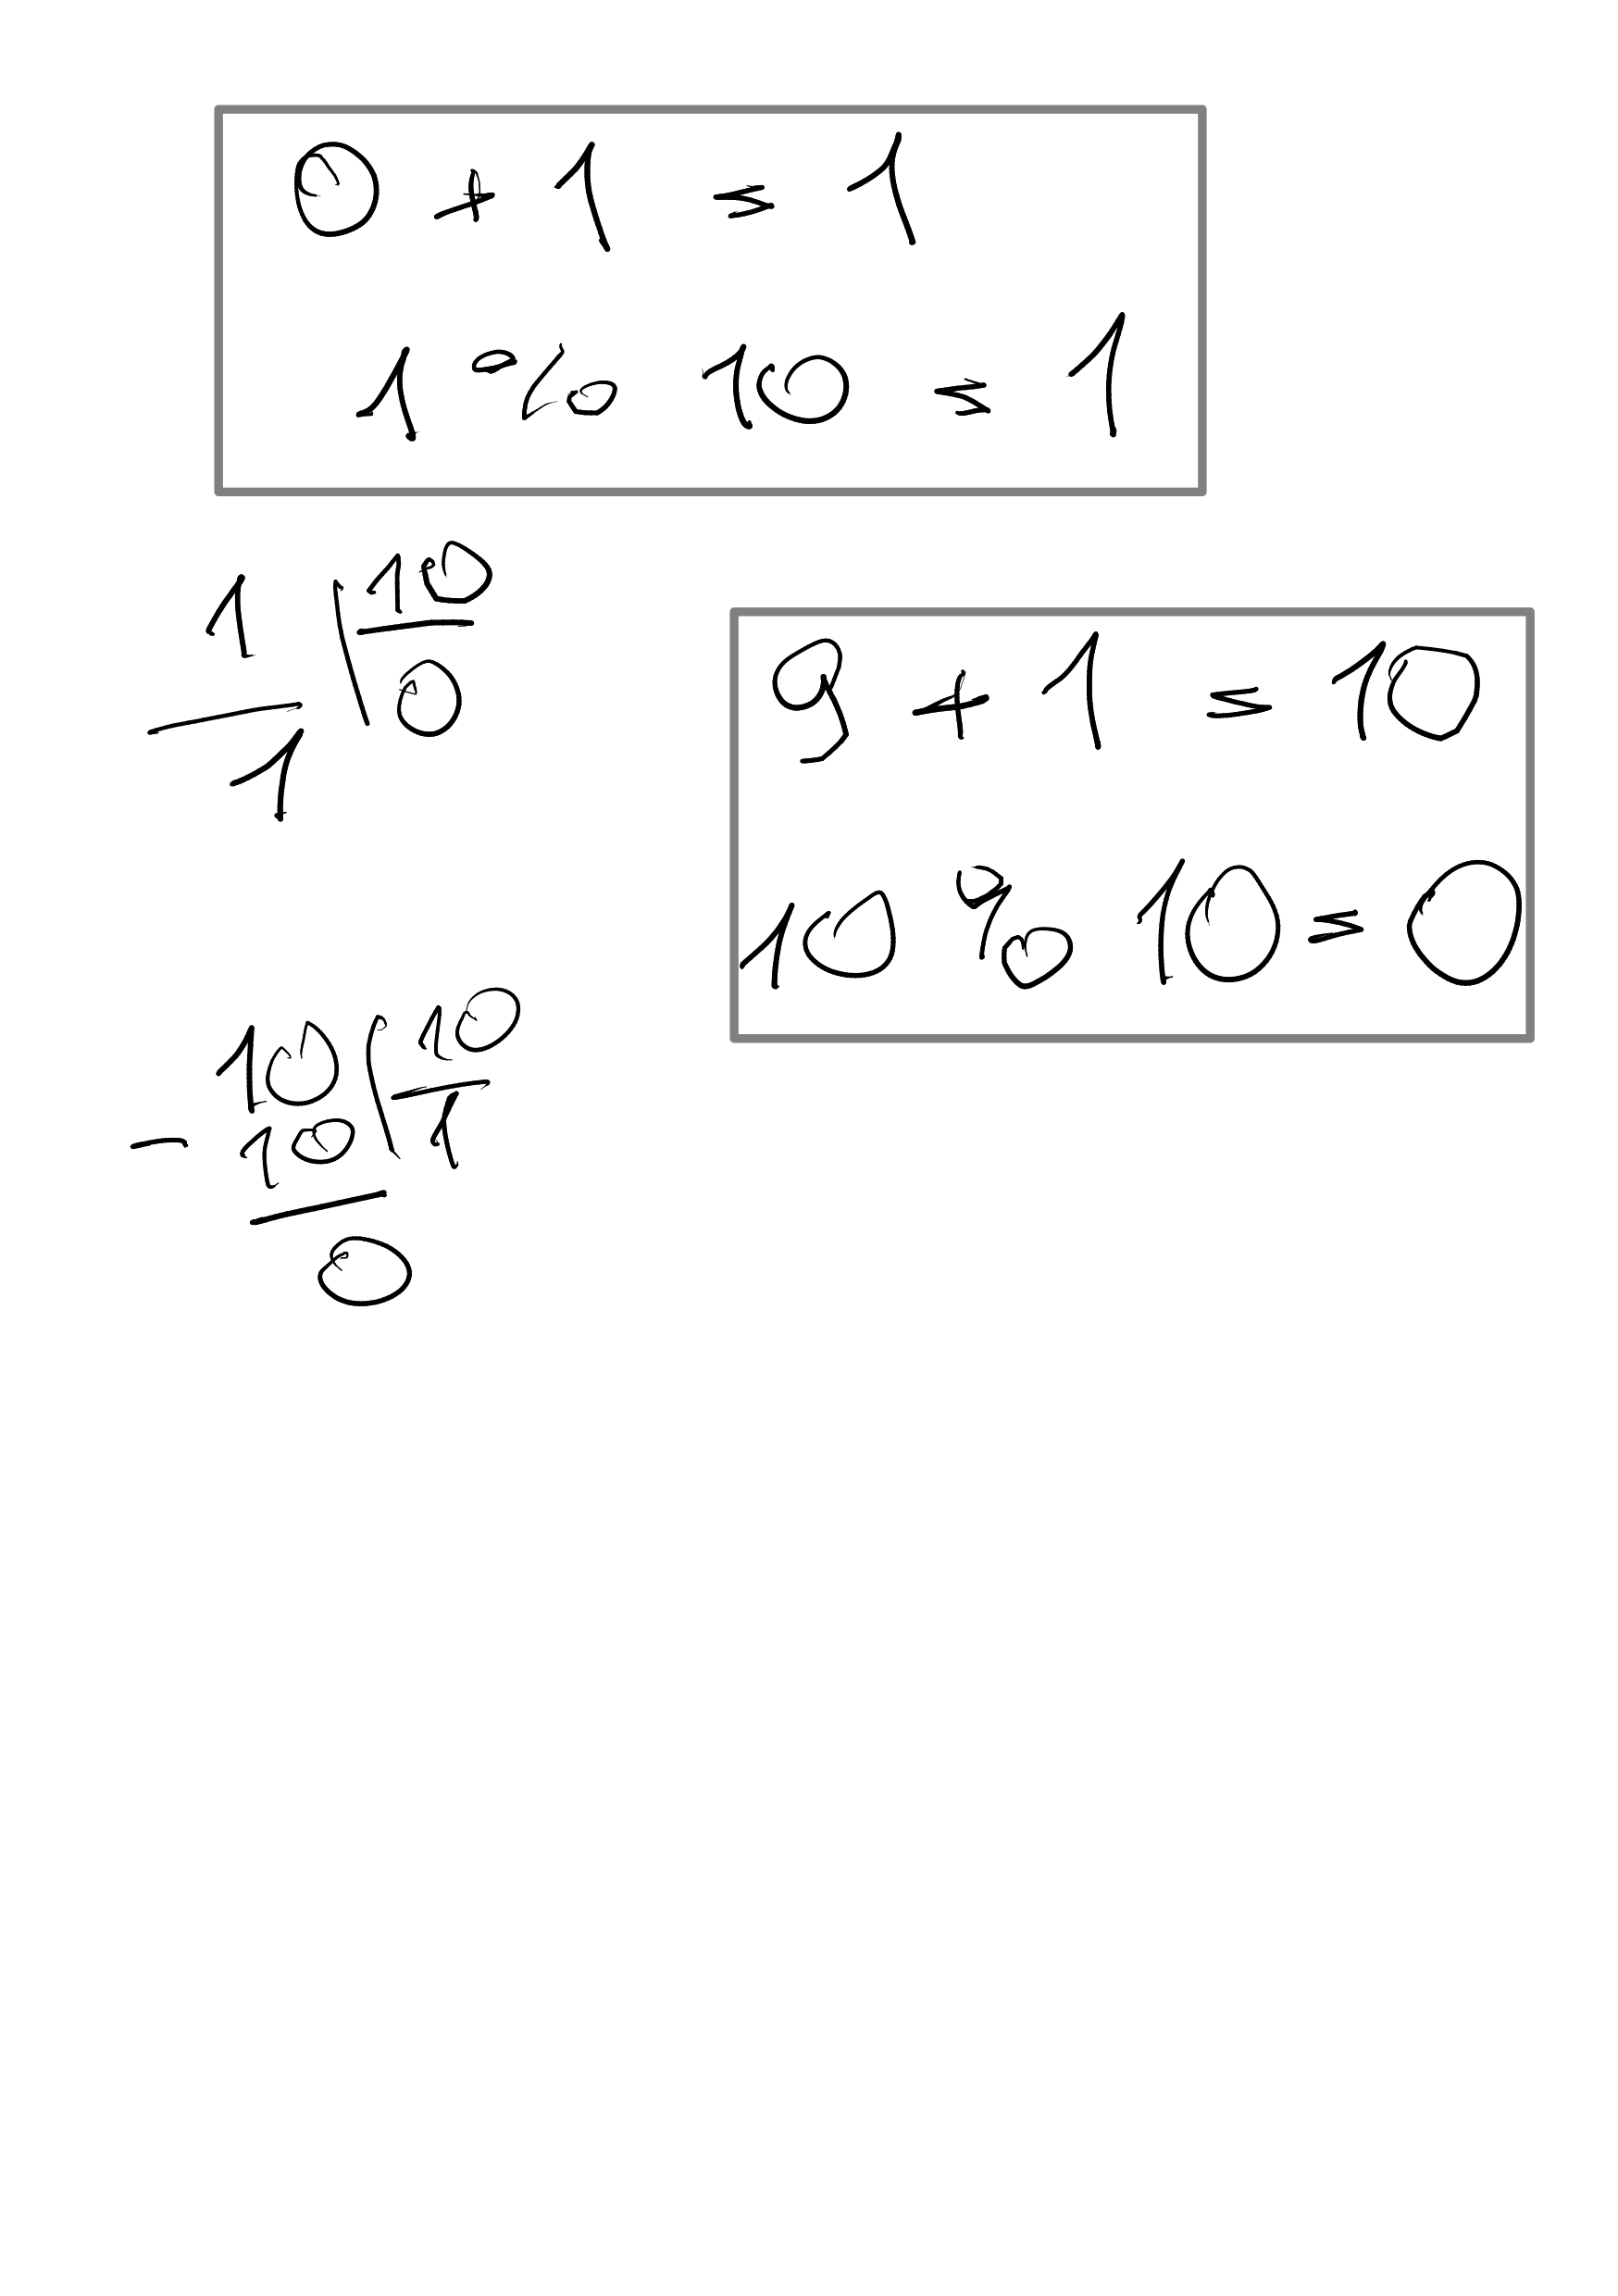 0 + 1 = 1
1 % 10 = 1
1 | 10
0
1
9 + 1 = 10
10 % 10 = 0
10 | 10
- 10 1
0